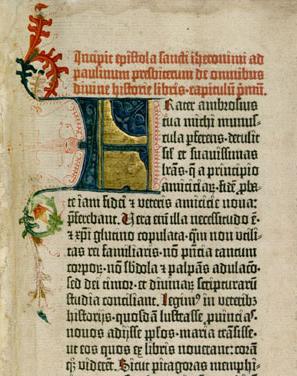 Incipit epistola sancti iheronimi ad
paulinum presbiterum de omnibus
divine historie libris. capitulū pmū.
Frater ambrosius
tua michi munus-
cula pferens. detulit
sil et suavissimas
lras. q̄ a principio
amiciciar̄. fidē pba-
te iam fidei et veteris amicicie noua:
pferebant. Vera eni illa necessitudo ē.
et xpi glutino copulata. qm non utili-
tas rei familiaris. nō pñcia tantum
corporū. nō sbdola et palpās adulacō.
sed dei timor. et diuinarū scripturarū
studia conciliant. Legimꝰ in veteribꝫ
historijs. quosdā lustrasse puīcias.
nouos adijsse pplos. maria trāsisse.
ut eos quos ex libris nouerant: corā
qꝫ viderēt. Sicut pitagoras memphi-